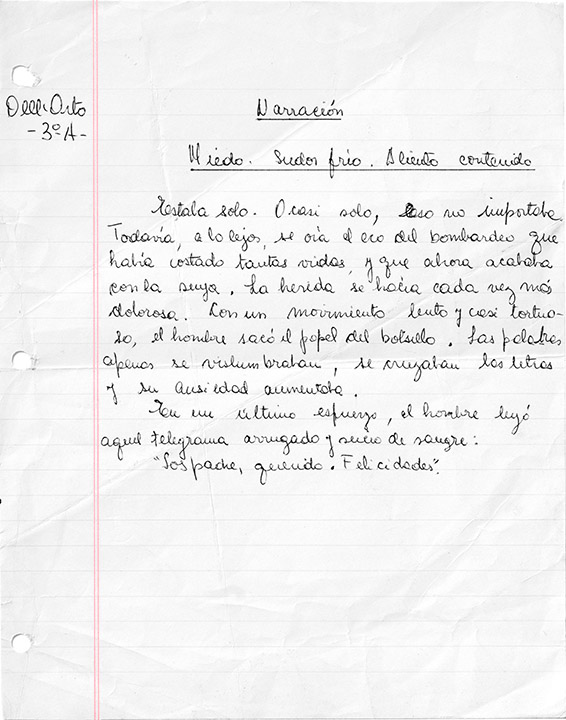 Dell'Orto
-3ºA-
Narración
Miedo. Sudor frío. Aliento contenido
Estaba solo. O casi solo, eso no importaba.
Todavía, a lo lejos, se oía el eco del bombardeo que
había costado tantas vidas, y que ahora acababa
con la suya. La herida se hacía cada vez más
dolorosa. Con un movimiento lento y casi tortuo-
so, el hombre sacó el papel del bolsillo. Las palabras
apenas se vislumbraban, se cruzaban las letras
y su ansiedad aumentaba.
En un último esfuerzo, el hombre leyó
aquel telegrama arrugado y sucio de sangre:
"Sos padre, querido. Felicidades".